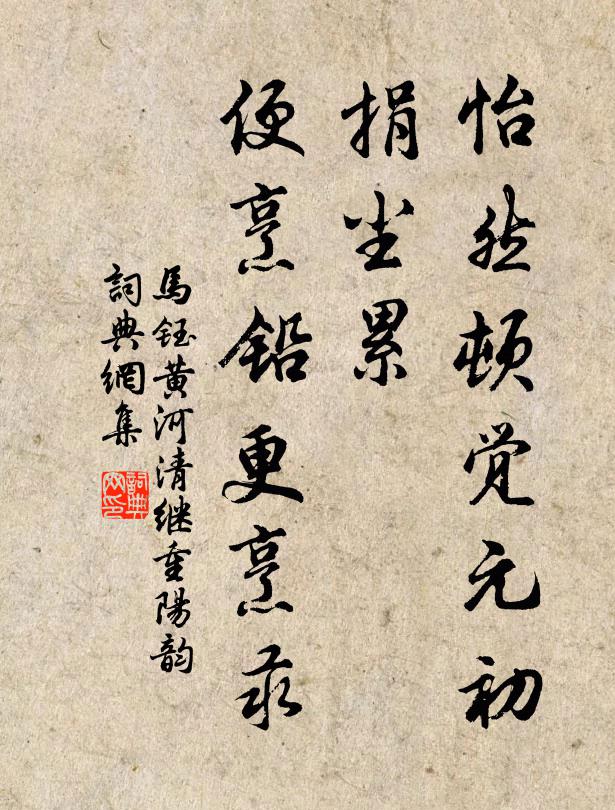 怡然頓觉元初
捐尘累
便烹鉛更烹汞
馬鈺黄河清继重陽韵
詞典網集
詞典网印